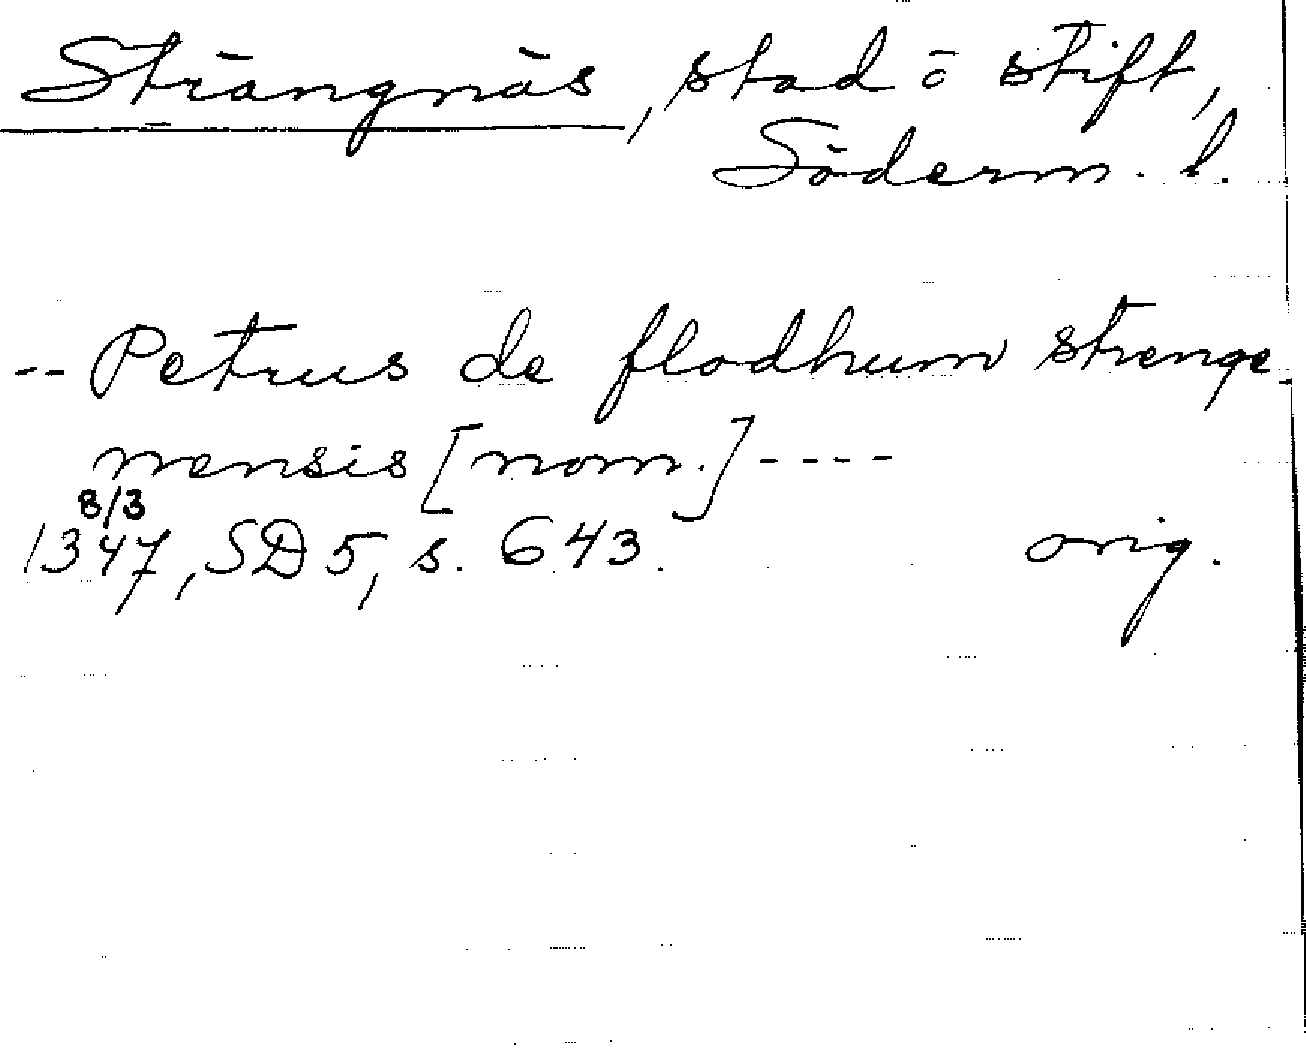 Strängnäs, stad o stift,
Söderm. l.
-- Petrus de flodhum strenge-
nensis [nom.] ----
8/3
1347, SD 5, s. 643. orig.